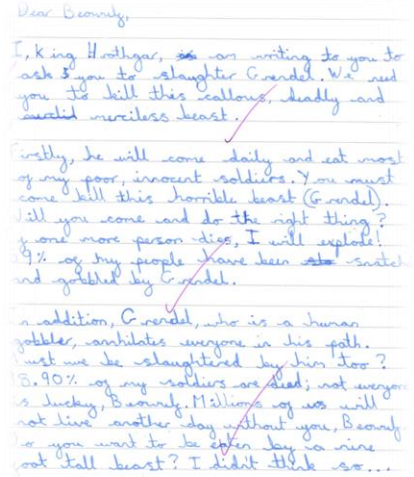 Dear Beowulf,
I, king Hrothgar, am writing to you to
ask you to slaughter Grendel. We need
you to kill this callous, deadly and
merciless beast.
Firstly, he will come daily and eat most
of my poor, innocent soldiers. You must
come kill this horrible beast (Grendel).
Will you come and do the right thing?
If one more person dies, I will explode!
9% of my people have been snatch
and gobbled by Grendel.
In addition, Grendel, who is a human
gobbler, annhilates everyone in his path.
Must we be slaughtered by him too?
8.90% of my soldiers are died; not everyon
is lucky, Beowulf. Millions of us will
not live another day without you, Beowulf.
Do you want to be eaten by a nine
foot tall beast? I didn't think so...